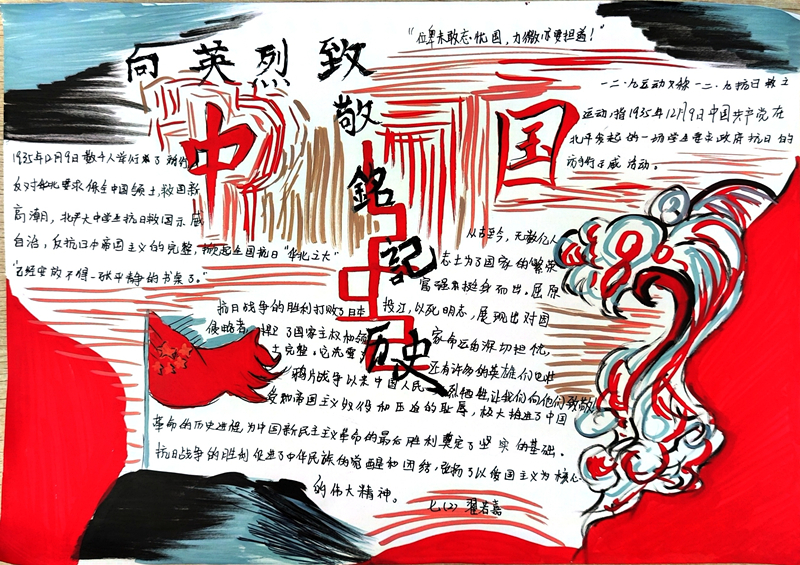 向英烈致敬
銘記历史
中国
"位卑未敢忘忧国,力微亦要担道!"
一二·九运动又称一二·九抗日救亡
运动,指1935年12月9日中国共产党在
北平发起的一场学生要求政府抗日的
游行示威活动。
1935年12月9日数千人举行了
反对华北 要求保全中国领土,救国新
高潮,北平大中学生抗日救国示威
自治,反抗日本帝国主义的完整,掀起全国抗日"华北之大"
"已经安放不得一张平静的书桌了。"
从古至今,无数仁人
志士为了国家的繁荣
富强而挺身而出。屈原
投江,以死明志,展现出对国
家命运的深切担忧,
还有许多的英雄们也牲
烈牺牲让我们向他们致敬
抗日战争的胜利打败了日本
侵略者,捍卫了国家主权和领
土完整。它洗雪了
鸦片战争以来中国人民
受到帝国主义奴役和压迫的耻辱,极大推进了中国
革命的历史进程,为中国新民主主义革命的最后胜利奠定了坚实的基础。
抗日战争的胜利促进了中华民族的觉醒和团结,弘扬了以爱国主义为核心
的伟大精神。
七(2) 翟若嘉